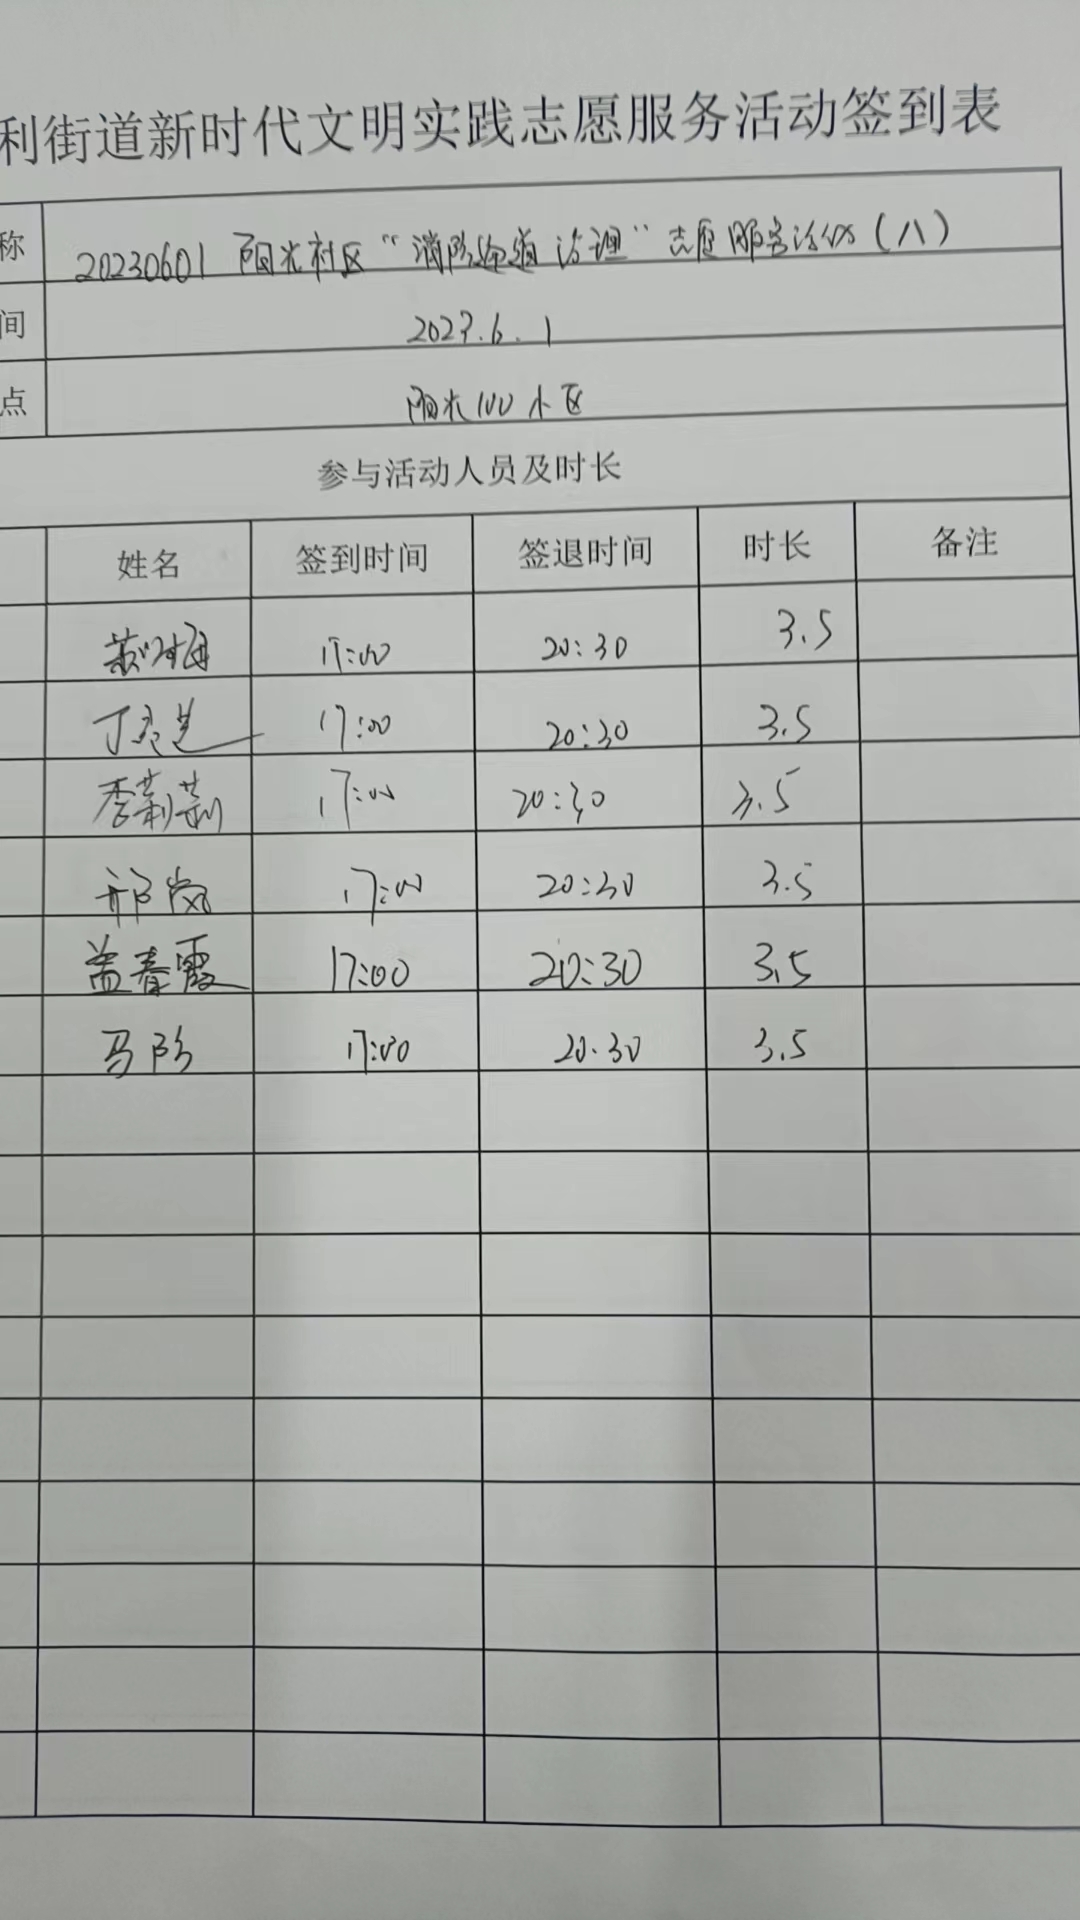 利街道新时代文明实践志愿服务活动签到表
称 20230601 阳光社区“消防通道治理”志愿服务活动(八)
间 2023.6.1
点 阳光100小区
参与活动人员及时长
姓名 签到时间 签退时间 时长 备注
17:00 20:30 3.5
丁 17:00 20:30 3.5
李莉莉 17:00 20:30 3.5
邢岗 17:00 20:30 3.5
盖春霞 17:00 20:30 3.5
马 17:00 20.30 3.5